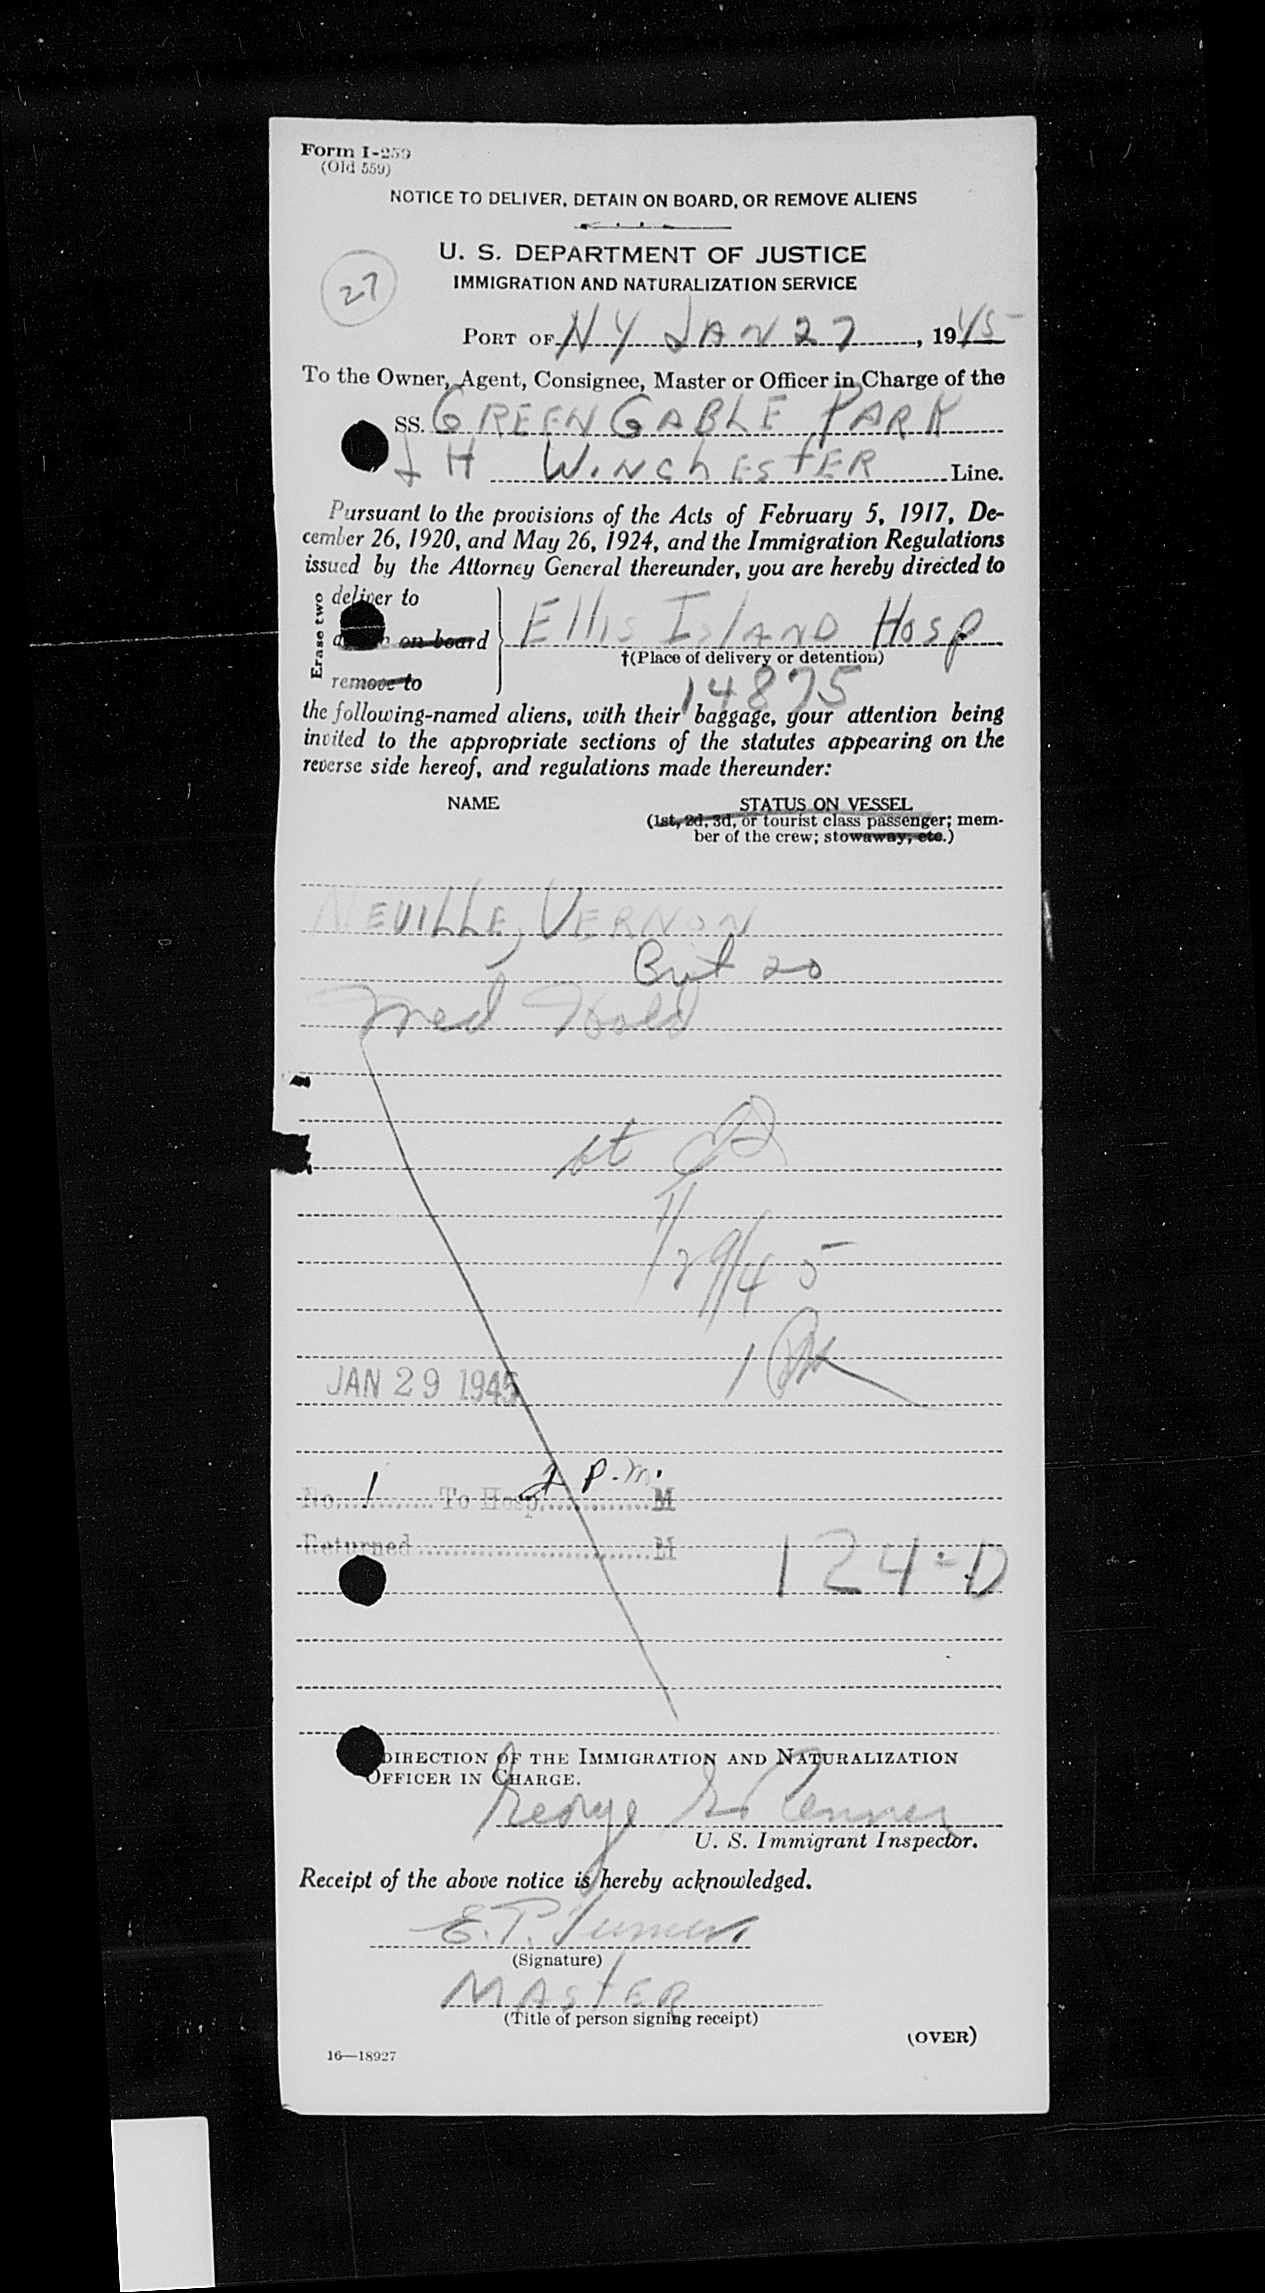 Form I-259
(Old 559)
NOTICE TO DELIVER, DETAIN ON BOARD, OR REMOVE ALIENS
U. S. DEPARTMENT OF JUSTICE
IMMIGRATION AND NATURALIZATION SERVICE
27
PORT OF NY JAN 27, 1945
To the Owner, Agent, Consignee, Master or Officer in Charge of the
SS. GREEN GABLE PARK
J H WINCHESTER Line.
Pursuant to the provisions of the Acts of February 5, 1917, De-
cember 26, 1920, and May 26, 1924, and the Immigration Regulations
issued by the Attorney General thereunder, you are hereby directed to
Erase two
deliver to
on board
remove to
Ellis Island Hosp
†(Place of delivery or detention)
14875
the following-named aliens, with their baggage, your attention being
invited to the appropriate sections of the statutes appearing on the
reverse side hereof, and regulations made thereunder:
NAME STATUS ON VESSEL
(1st, 2d, 3d, or tourist class passenger; mem-
ber of the crew; stowaway, etc.)
NEVILLE, VERNON
Brit 20
Med Hold
1/29/45
1
JAN 29 1945
No. 1 To Hosp. 2 P.m. M
Returned M
124-D
DIRECTION OF THE IMMIGRATION AND NATURALIZATION
OFFICER IN CHARGE.
George
U. S. Immigrant Inspector.
Receipt of the above notice is hereby acknowledged.
E.P. Turner
(Signature)
MASTER
(Title of person signing receipt)
(OVER)
16—18927